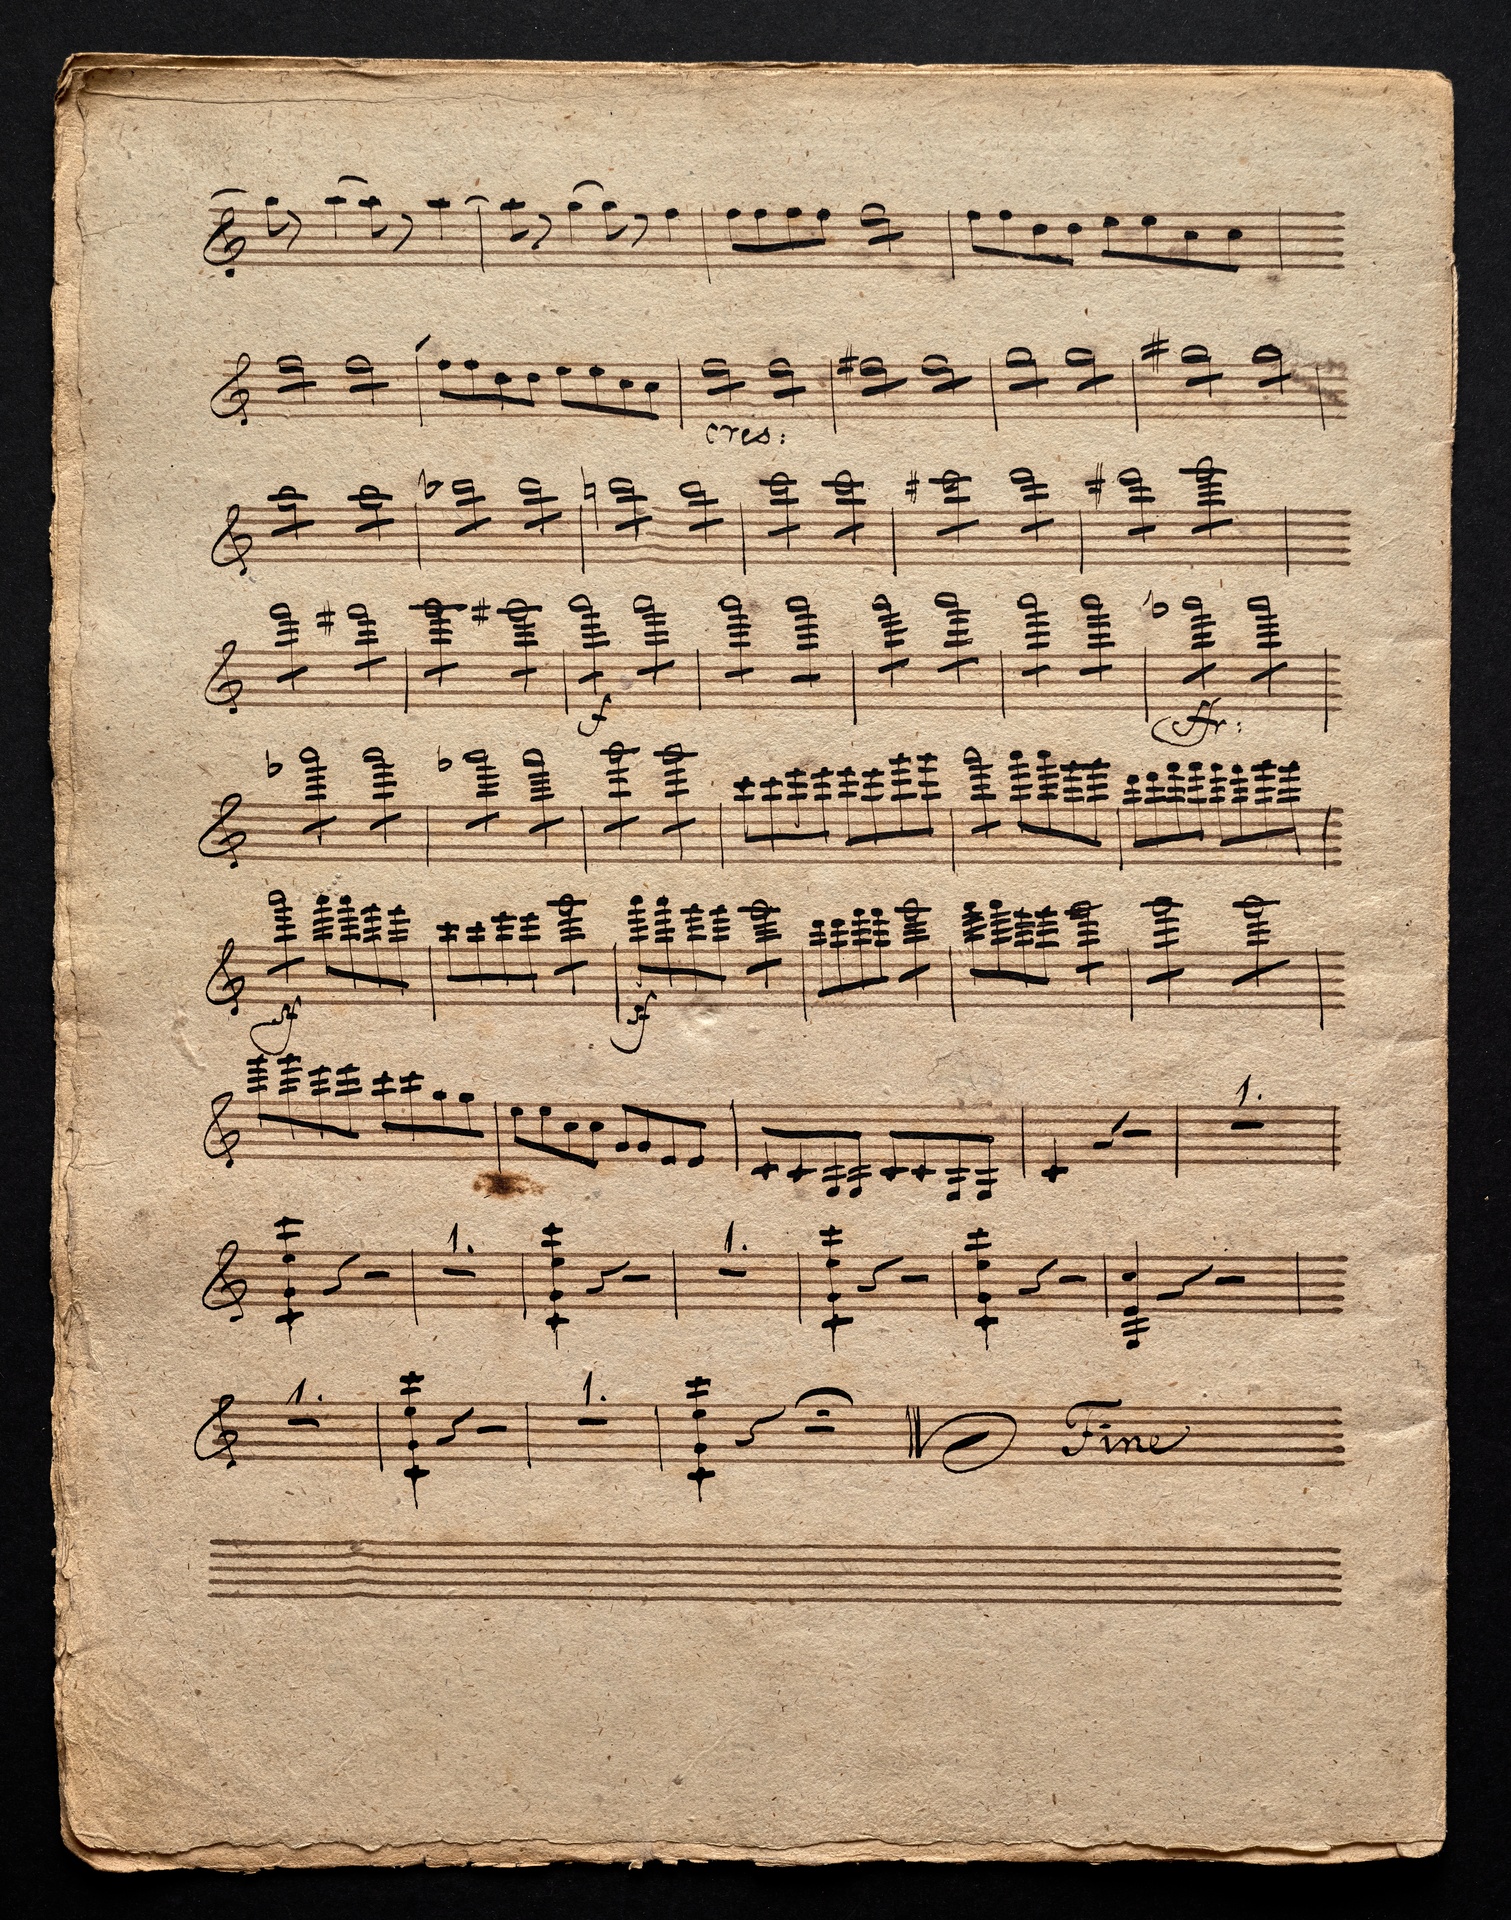 cres:
f
ffr:
sf sf
1.
1. 1.
1. 1. Fine